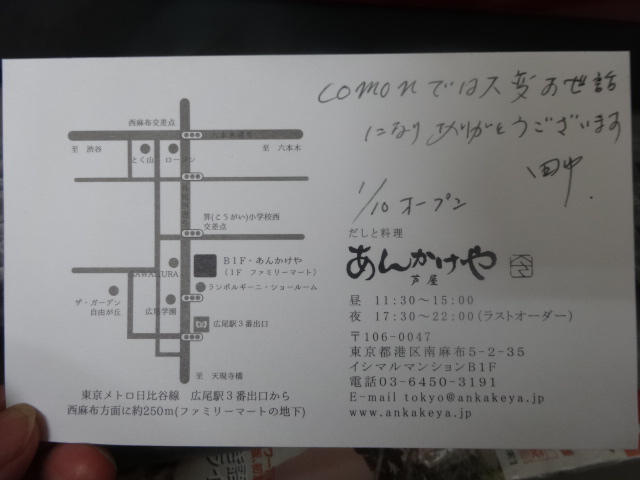 comonでは大変お世話
になりありがとうございます
田中
1/10 オープン
西麻布交差点
六本木通り
至 渋谷
至 六本木
とく山
ローソン
笄(こうがい)小学校西
交差点
B1F・あんかけや
(1F ファミリーマート)
KURA
ランボルギーニ・ショールーム
ザ・ガーデン
自由が丘
広尾学園
広尾駅3番出口
至 天現寺橋
東京メトロ日比谷線 広尾駅3番出口から
西麻布方面に約250m(ファミリーマートの地下)
だしと料理
あんかけや
芦屋
昼 11:30～15:00
夜 17:30～22:00(ラストオーダー)
〒106-0047
東京都港区南麻布5-2-35
イシマルマンションB1F
電話03-6450-3191
E-mail tokyo@ankakeya.jp
www.ankakeya.jp